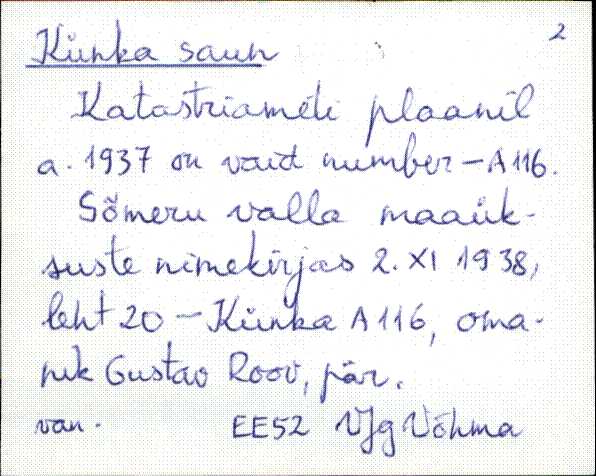 2
Künka saun
Katastriameti plaanil
a. 1937 on vaid number - A 116.
Sõmeru valla maaük-
suste nimekirjas 2. XI 1938,
leht 20 - Künka A 116, oma-
nik Gustav Roov, pär.
van. EE52 VJg Võhma